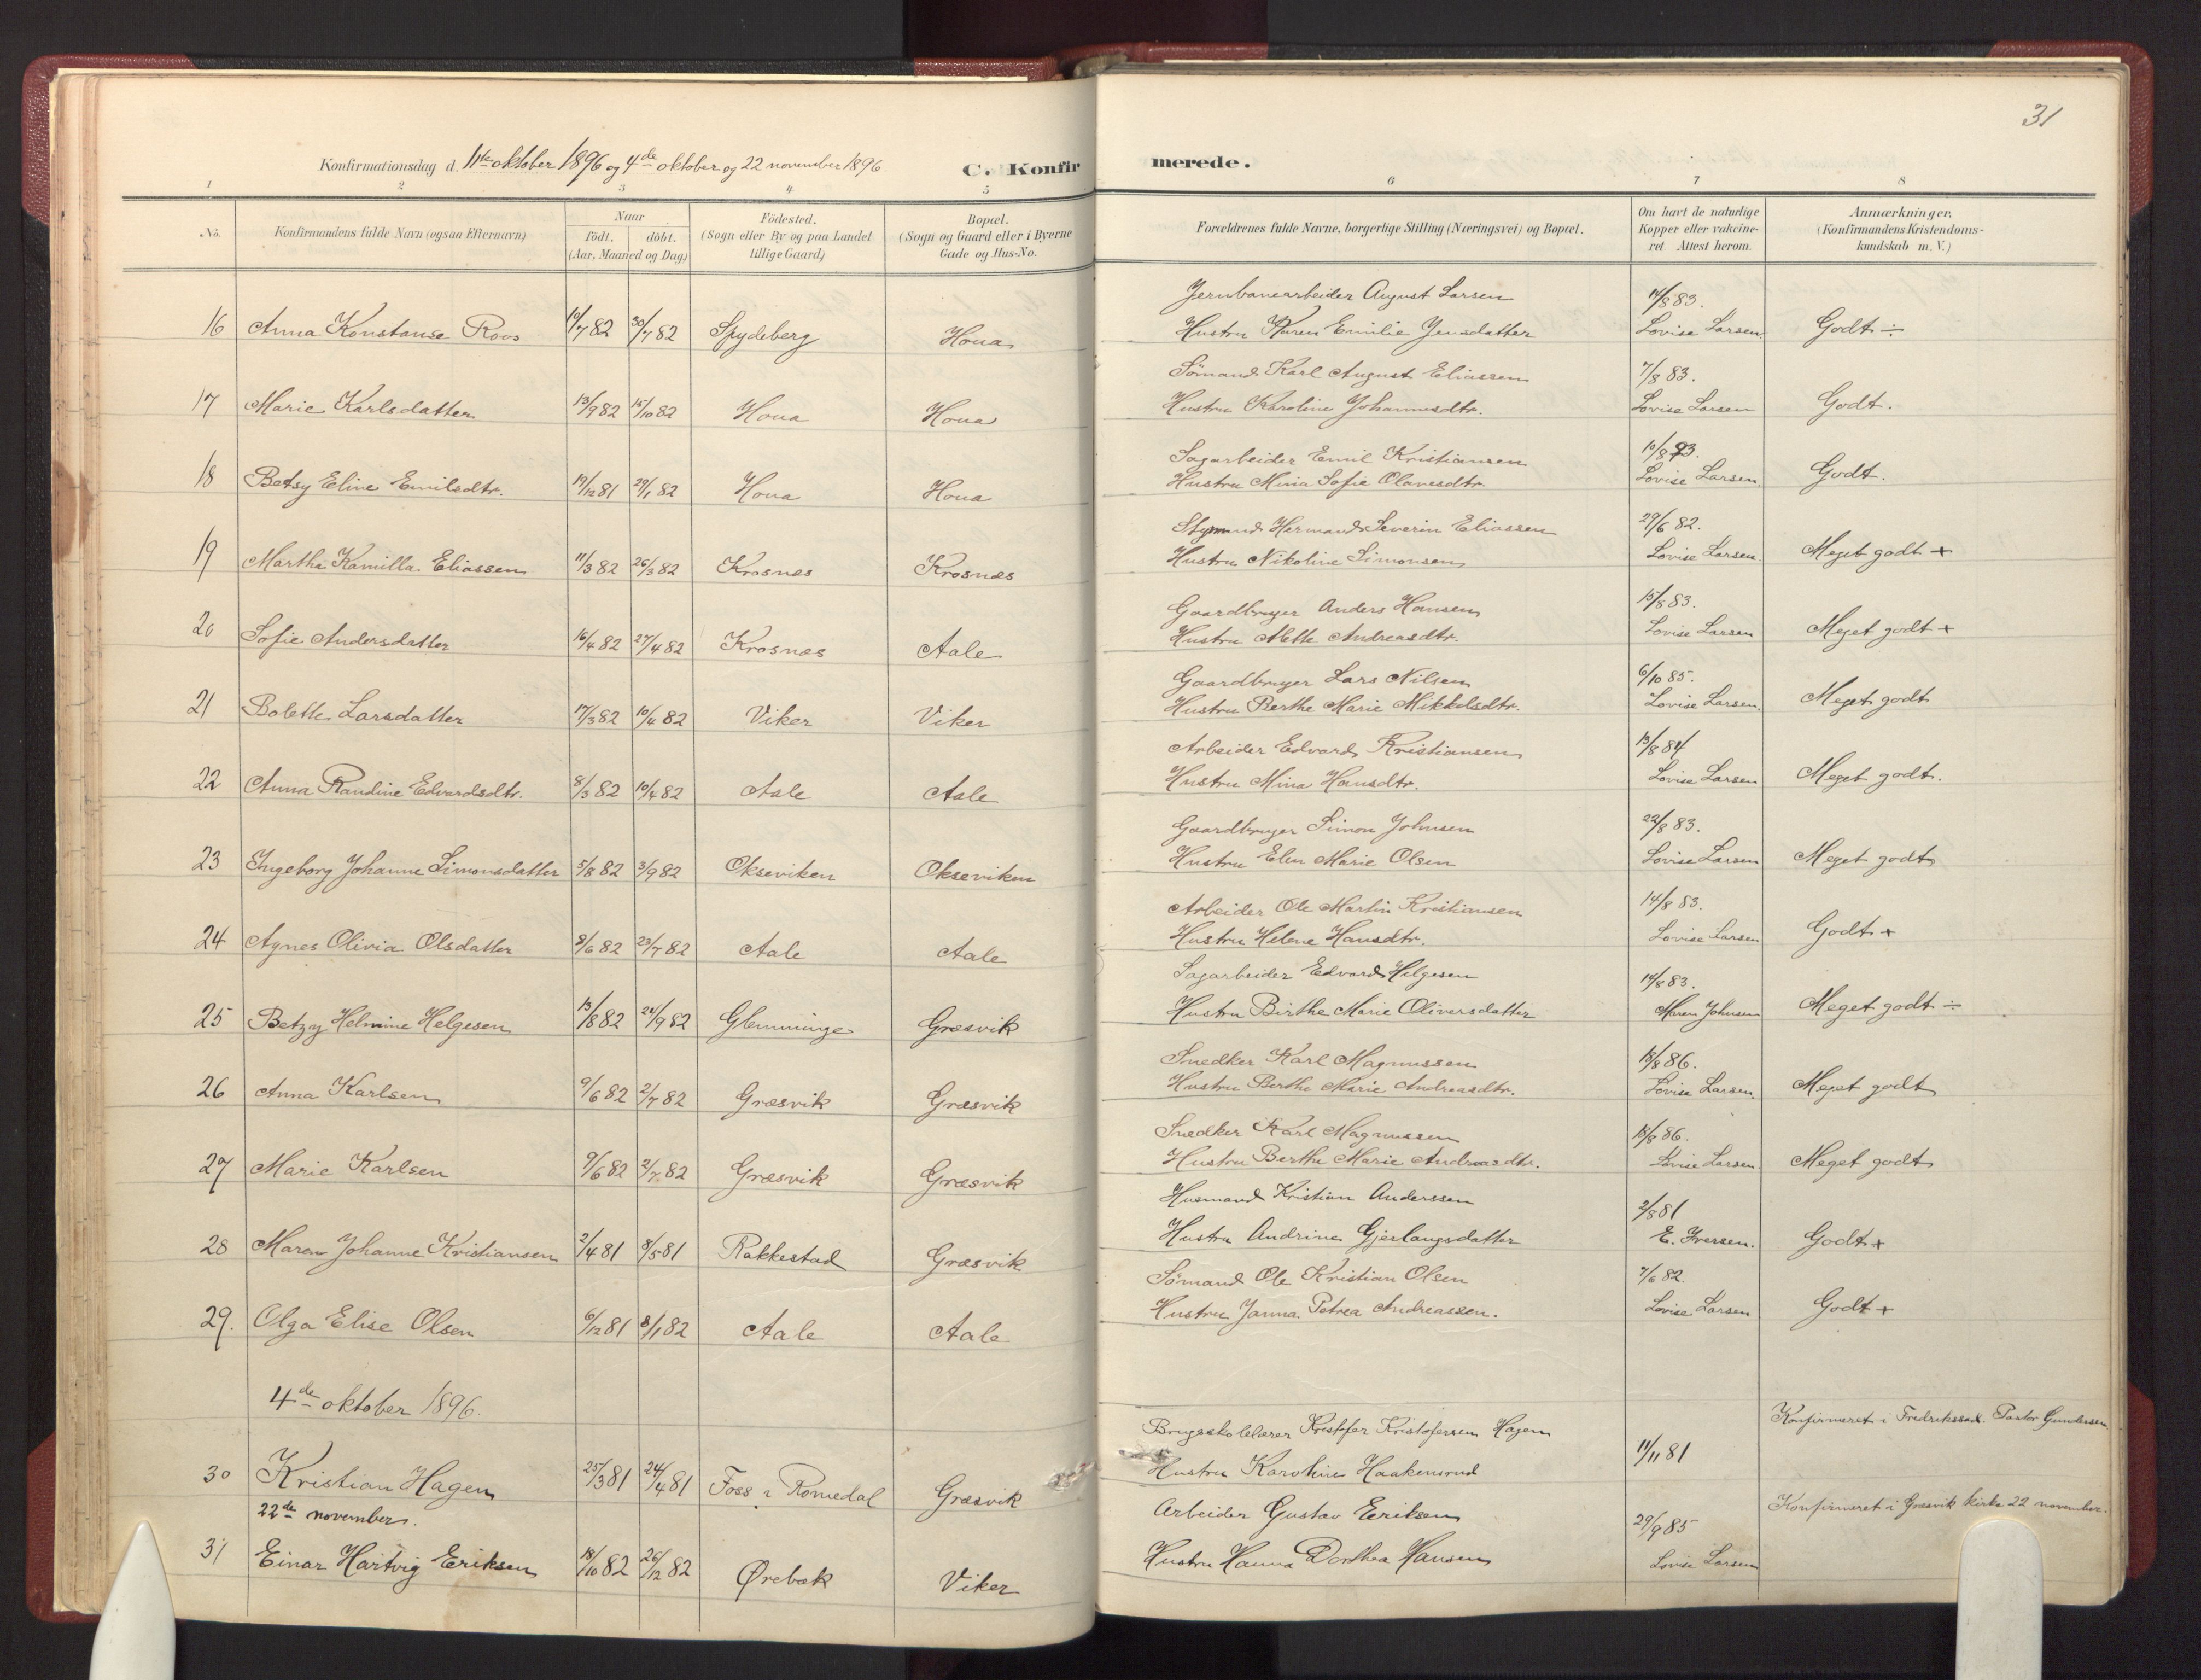 31
Konfirmationsdag d. 11te oktober 1896 og 4de oktober og 22 november 1896.
C. Konfirmerede.
1 2 3 4 5 6 7 8
No.
Konfirmandens fulde Navn (ogsaa Efternavn)
Naar
födt. döbt.
(Aar, Maaned og Dag)
Födested.
(Sogn eller By og paa Landet
tillige Gaard)
Bopæl.
(Sogn og Gaard eller i Byerne
Gade og Hus-No.
Forældrenes fulde Navne, borgerlige Stilling (Næringsvei) og Bopæl.
Om havt de naturlige
Kopper eller vakcine-
ret Attest herom.
Anmærkninger.
(Konfirmandens Kristendoms-
kundskab m. V.)
16 Anna Konstanse Roos 10/7 82 30/7 82 Spydeberg Houa
Jernbanearbeider August Larsen 14/8 83.
Hustru Karen Emilie Jensdatter Lovise Larsen Godt ÷
17 Marie Karlsdatter 13/9 82 15/10 82 Houa Houa
Sömand Karl August Eliassen 7/8 83.
Hustru Karoline Johannesdtr. Lovise Larsen Godt.
18 Betsy Eline Emilsdtr. 19/12 81 29/1 82 Houa Houa
Sagarbeider Emil Kristiansen
Hustru Mina Sofie Olavesdtr. Lovise Larsen. Godt.
19 Martha Kamilla Eliassen 11/3 82 26/3 82 Krosnæs Krosnæs
Styrmand Hermand Severin Eliassen 29/6 82.
Hustru Nikoline Simonsen Lovise Larsen. Meget godt +
20 Sofie Andersdatter 16/4 82 27/4 82 Krosnæs Aale
Gaardbruger Anders Hansen 15/8 83.
Hustru Mette Andreasdtr. Lovise Larsen Meget godt +
21 Bolette Larsdatter 17/3 82 10/4 82 Viker Viker
Gaardbruger Lars Nilsen 6/10 85.
Hustru Berthe Marie Mikkelsdtr. Lovise Larsen. Meget godt
22 Anna Randine Edvardsdtr. 8/3 82 10/4 82 Aale Aale
Arbeider Edvard Kristiansen 13/8 84
Hustru Mina Hansdtr. Lovise Larsen Meget godt.
23 Ingeborg Johanne Simonsdatter 5/8 82 3/9 82 Okseviken Okseviken
Gaardbruger Simon Johnsen 22/8 83.
Hustru Elen Marie Olsen Lovise Larsen Meget godt
24 Agnes Olivia Olsdatter 8/6 82 23/7 82 Aale Aale
Arbeider Ole Martin Kristiansen 14/8 83.
Hustru Helene Hansdtr. Lovise Larsen Godt +
25 Betzy Helmine Helgesen 13/8 82 24/9 82 Glemminge Græsvik
Sagarbeider Edvard Helgesen 14/8 83.
Hustru Birthe Marie Oliversdatter Maren Johnsen Meget godt ÷
26 Anna Karlsen 9/6 82 2/7 82 Græsvik Græsvik
Snedker Karl Magnussen 18/8 86.
Hustru Berthe Marie Andreasdtr. Lovise Larsen. Meget godt
27 Marie Karlsen 9/6 82 2/7 82 Græsvik Græsvik
Snedker Karl Magnussen 18/8 86.
Hustru Berthe Marie Andreasdtr. Lovise Larsen Meget godt
28 Maren Johanne Kristiansen 2/4 81 8/5 81 Rakkestad Græsvik
Husmand Kristian Anderssen 2/8 81
Hustru Andrine Gjerlaugsdatter E. Iversen. Godt +
29. Olga Elise Olsen 6/12 81 8/1 82 Aale Aale
Sömand Ole Kristian Olsen 7/6 82.
Hustru Janna Petrea Andreassen. Lovise Larsen Godt +
4de oktober 1896.
30 Kristian Hagen 25/3 81 24/4 81 Foss i Romedal Græsvik
Brugsskolelærer Kristofer Kristofersen Hagen 11/11 81 Konfirmeret i Fredrikstad. Pastor Gundersen
Hustru Karoline Haakensrud
22de november.
31 Einar Hartvig Eriksen 18/10 82 26/12 82 Ørebæk Viker
Arbeider Gustav Eriksen 29/9 85 Konfirmeret i Græsvik kirke 22 november.
Hustru Hanna Dorthea Hansen Lovise Larsen